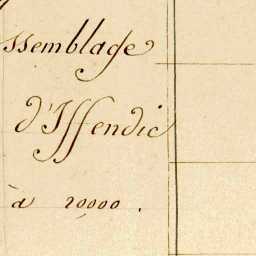 ssemblage
d'Iffendic
à 20000.